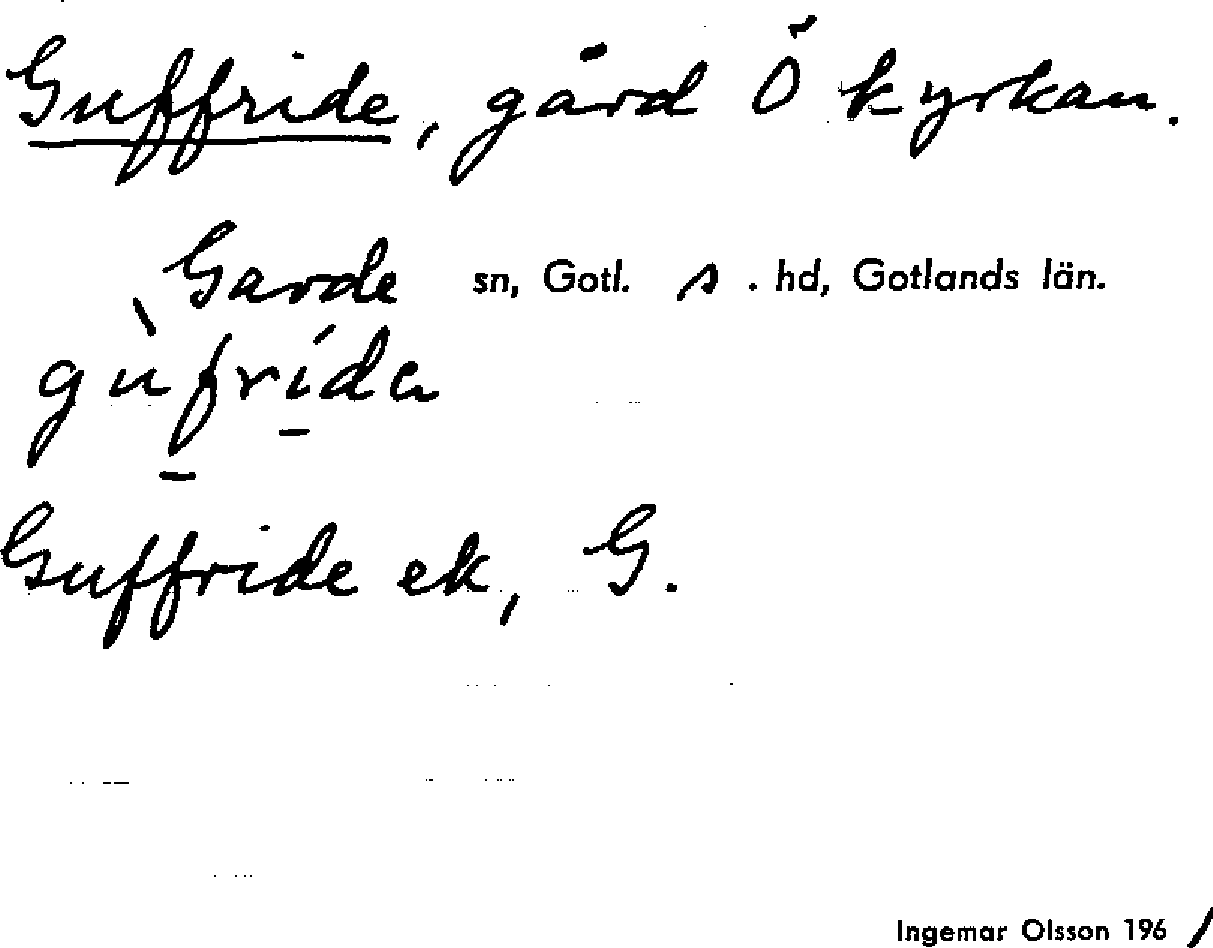 Guffride, gård Ö kyrkan.
Garde sn, Gotl. s. hd, Gotlands län.
gùfrída
Guffride ek, G.
Ingemar Olsson 1961